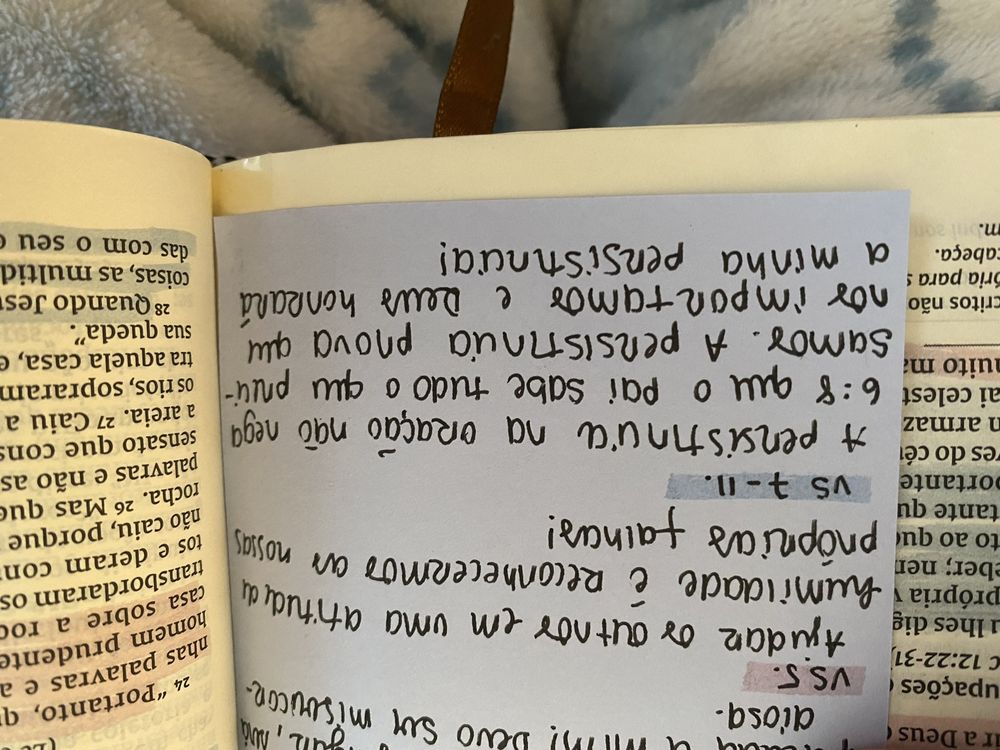 r a Deus
upações
c 12.22-31)
u lhes dig
própria v
eber; nem
to ao que
tante qu
portante
ves do cé
n armaz
ai celest
muito ma
critos não
ória para s
cabeça.
m.
a mim! Devo ser misericor-
diosa.
vs 5.
Ajudar os outros em uma atitude de
humildade é reconhecermos as nossas
próprias falhas!
vs 7-11.
A persistência na oração não nega
6:8 que o pai sabe tudo o que preci-
samos. A persistência prova que
nos importamos e Deus honrará
a minha persistência!
24 “Portanto, qu
nhas palavras e a
homem prudente
casa sobre a roc
transbordaram os
tos e deram com
não caiu, porque
rocha. 26 Mas que
palavras e não as
sensato que cons
a areia. 27 Caiu a
os rios, sopraram
tra aquela casa, e
sua queda”.
28 Quando Jesu
coisas, as multid
das com o seu